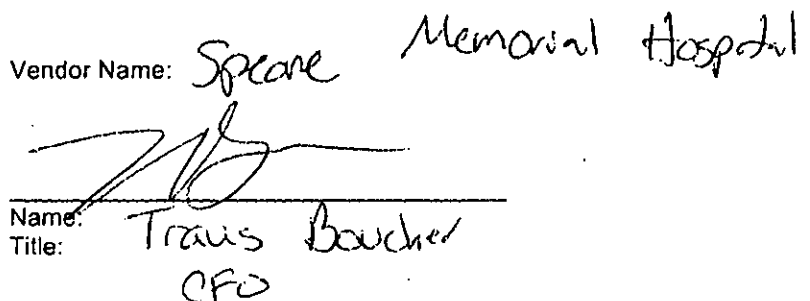 Vendor Name: Speare Memorial Hospital
Name: Travis Boucher
Title:
CFO